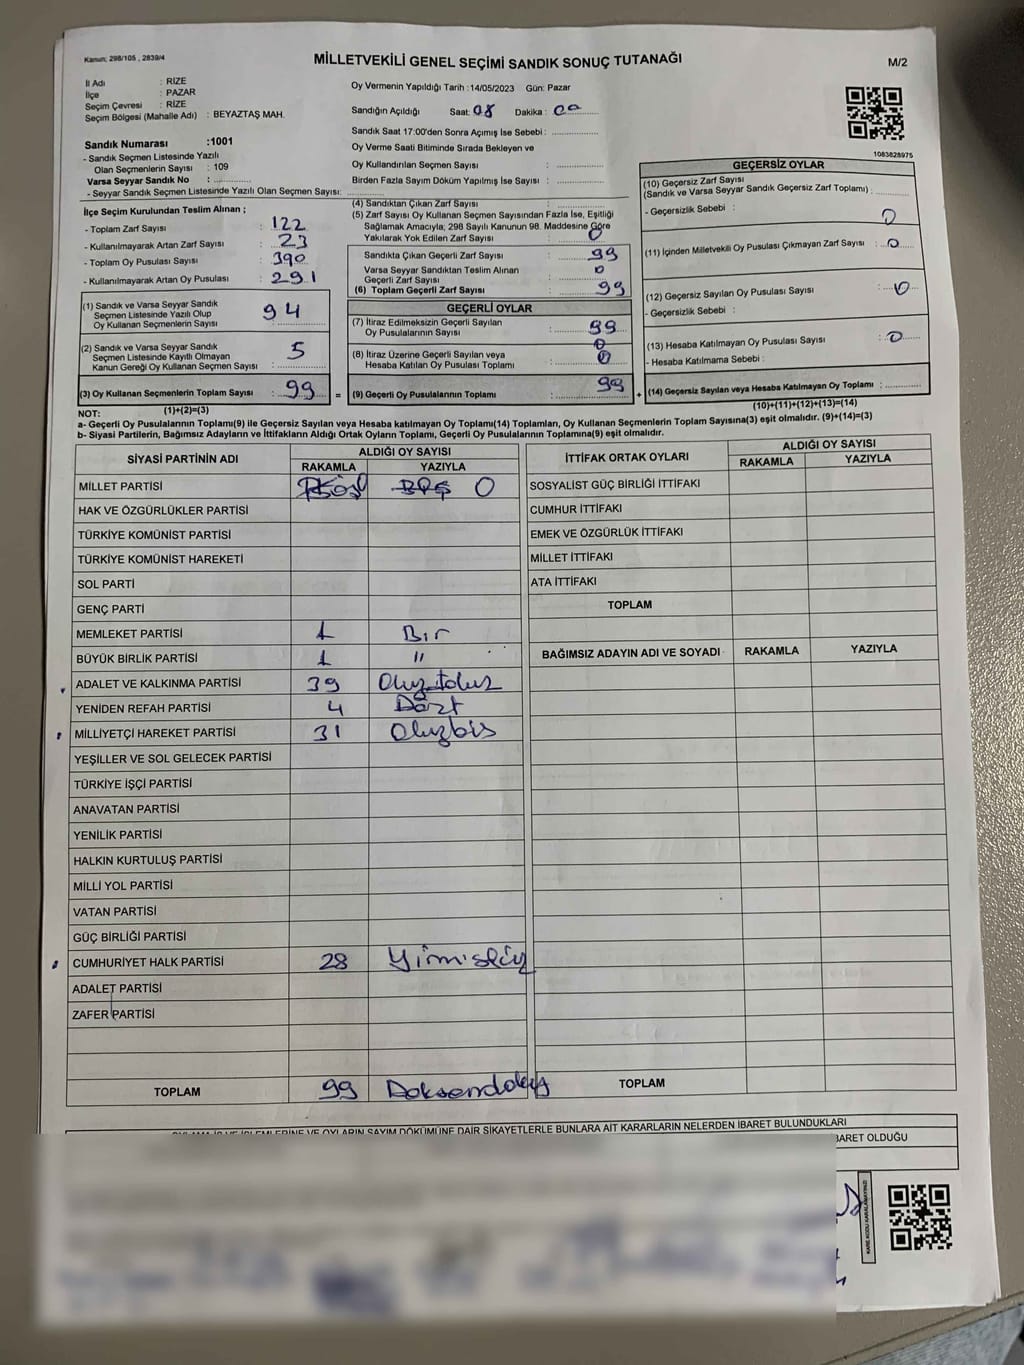 Kanun; 298/105 , 2839/4
MİLLETVEKİLİ GENEL SEÇİMİ SANDIK SONUÇ TUTANAĞI
M/2
İl Adı : RİZE
İlçe : PAZAR
Seçim Çevresi : RİZE
Seçim Bölgesi (Mahalle Adı) : BEYAZTAŞ MAH.
Sandık Numarası :1001
- Sandık Seçmen Listesinde Yazılı
Olan Seçmenlerin Sayısı : 109
Varsa Seyyar Sandık No :
- Seyyar Sandık Seçmen Listesinde Yazılı Olan Seçmen Sayısı:
Oy Vermenin Yapıldığı Tarih :14/05/2023 Gün: Pazar
Sandığın Açıldığı Saat: 08 Dakika : 00
Sandık Saat 17:00'den Sonra Açımış İse Sebebi :
Oy Verme Saati Bitiminde Sırada Bekleyen ve
Oy Kullandırılan Seçmen Sayısı :
Birden Fazla Sayım Döküm Yapılmış İse Sayısı :
1083828975
İlçe Seçim Kurulundan Teslim Alınan ;
- Toplam Zarf Sayısı : 122
- Kullanılmayarak Artan Zarf Sayısı : 23
- Toplam Oy Pusulası Sayısı : 390
- Kullanılmayarak Artan Oy Pusulası : 291
(1) Sandık ve Varsa Seyyar Sandık
Seçmen Listesinde Yazılı Olup
Oy Kullanan Seçmenlerin Sayısı 94
(2) Sandık ve Varsa Seyyar Sandık
Seçmen Listesinde Kayıtlı Olmayan
Kanun Gereği Oy Kullanan Seçmen Sayısı : 5
(3) Oy Kullanan Seçmenlerin Toplam Sayısı : 99
(1)+(2)=(3)
(4) Sandıktan Çıkan Zarf Sayısı :
(5) Zarf Sayısı Oy Kullanan Seçmen Sayısından Fazla İse, Eşitliği
Sağlamak Amacıyla; 298 Sayılı Kanunun 98. Maddesine Göre
Yakılarak Yok Edilen Zarf Sayısı : 0
Sandıkta Çıkan Geçerli Zarf Sayısı : 99
Varsa Seyyar Sandıktan Teslim Alınan
Geçerli Zarf Sayısı : 0
(6) Toplam Geçerli Zarf Sayısı : 99
GEÇERLİ OYLAR
(7) İtiraz Edilmeksizin Geçerli Sayılan
Oy Pusulalarının Sayısı : 99
0
(8) İtiraz Üzerine Geçerli Sayılan veya
Hesaba Katılan Oy Pusulası Toplamı : 0
= (9) Geçerli Oy Pusulalarının Toplamı : 99
GEÇERSİZ OYLAR
(10) Geçersiz Zarf Sayısı
(Sandık ve Varsa Seyyar Sandık Geçersiz Zarf Toplamı) :
- Geçersizlik Sebebi : 0
(11) İçinden Milletvekili Oy Pusulası Çıkmayan Zarf Sayısı : 0
(12) Geçersiz Sayılan Oy Pusulası Sayısı : 0
- Geçersizlik Sebebi :
(13) Hesaba Katılmayan Oy Pusulası Sayısı : 0
- Hesaba Katılmama Sebebi :
+ (14) Geçersiz Sayılan veya Hesaba Katılmayan Oy Toplamı :
(10)+(11)+(12)+(13)=(14)
NOT:
a- Geçerli Oy Pusulalarının Toplamı(9) ile Geçersiz Sayılan veya Hesaba katılmayan Oy Toplamı(14) Toplamları, Oy Kullanan Seçmenlerin Toplam Sayısına(3) eşit olmalıdır. (9)+(14)=(3)
b- Siyasi Partilerin, Bağımsız Adayların ve İttifakların Aldığı Ortak Oyların Toplamı, Geçerli Oy Pusulalarının Toplamına(9) eşit olmalıdır.
SİYASİ PARTİNİN ADI ALDIĞI OY SAYISI
RAKAMLA YAZIYLA
MİLLET PARTİSİ 0
HAK VE ÖZGÜRLÜKLER PARTİSİ
TÜRKİYE KOMÜNİST PARTİSİ
TÜRKİYE KOMÜNİST HAREKETİ
SOL PARTİ
GENÇ PARTİ
MEMLEKET PARTİSİ 1 Bir
BÜYÜK BİRLİK PARTİSİ 1 "
ADALET VE KALKINMA PARTİSİ 39 Otuzdokuz
YENİDEN REFAH PARTİSİ 4 Dört
MİLLİYETÇİ HAREKET PARTİSİ 31 Otuzbir
YEŞİLLER VE SOL GELECEK PARTİSİ
TÜRKİYE İŞÇİ PARTİSİ
ANAVATAN PARTİSİ
YENİLİK PARTİSİ
HALKIN KURTULUŞ PARTİSİ
MİLLİ YOL PARTİSİ
VATAN PARTİSİ
GÜÇ BİRLİĞİ PARTİSİ
CUMHURİYET HALK PARTİSİ 28
ADALET PARTİSİ
ZAFER PARTİSİ
TOPLAM 99 Doksandokuz
İTTİFAK ORTAK OYLARI ALDIĞI OY SAYISI
RAKAMLA YAZIYLA
SOSYALİST GÜÇ BİRLİĞİ İTTİFAKI
CUMHUR İTTİFAKI
EMEK VE ÖZGÜRLÜK İTTİFAKI
MİLLET İTTİFAKI
ATA İTTİFAKI
TOPLAM
BAĞIMSIZ ADAYIN ADI VE SOYADI RAKAMLA YAZIYLA
TOPLAM
OYLAMA İŞ VE İŞLEMLERİNE VE OYLARIN SAYIM DÖKÜMÜNE DAİR ŞİKAYETLERLE BUNLARA AİT KARARLARIN NELERDEN İBARET BULUNDUKLARI
İBARET OLDUĞU